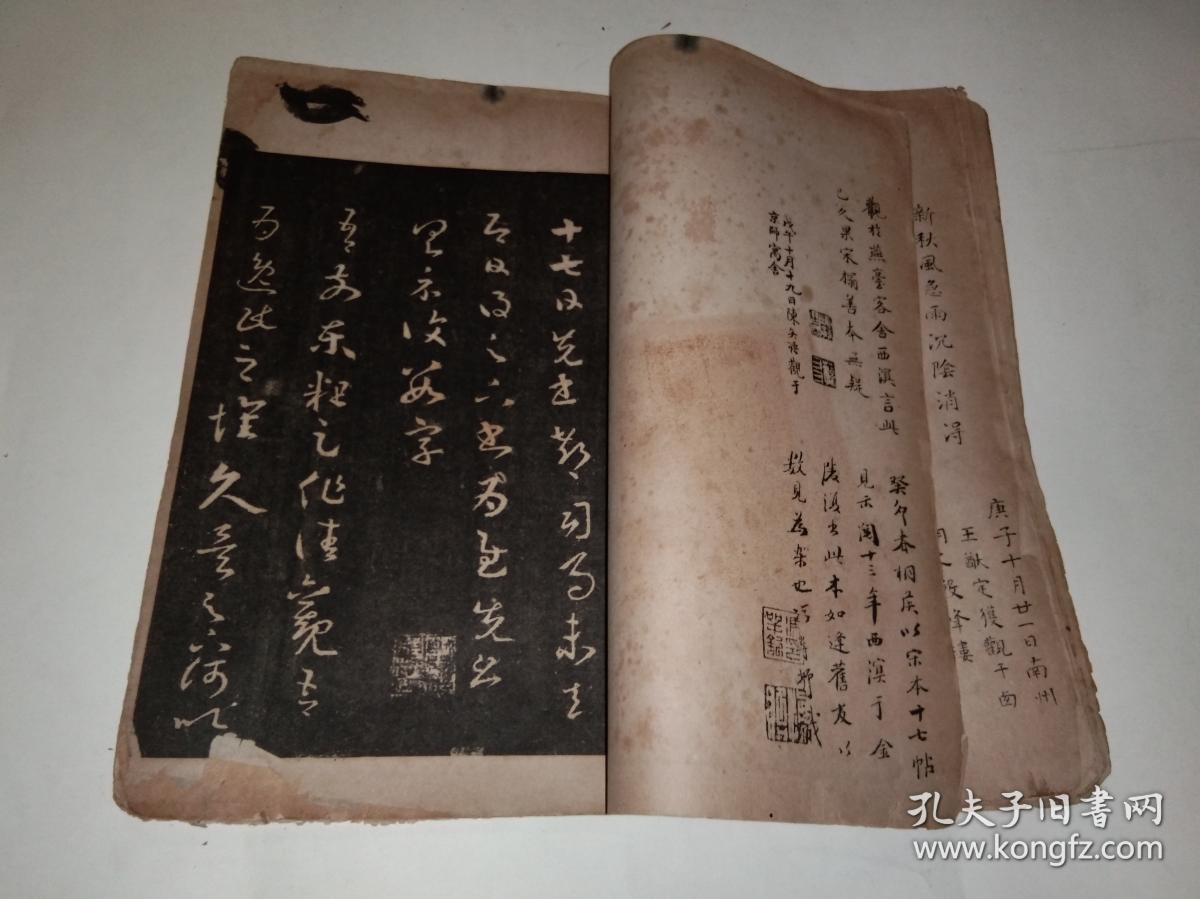 庚子十月廿一日南州
王猷定獲觀于西
新秋風急雨沉陰消得
觀於燕臺客舍西溟言此
已久果宋搨善本無疑
戊午十月十九日陳 觀于
京師寓舍
癸卯春桐矦以宋本十七帖
見示閱十三年西溟于金
陵復出此本如逢舊友以
數見為樂也 識
十七日先書郗司馬未去
即日得足下書為慰先書
以具示復數字
吾前東粗足作佳觀吾
為逸民之懷久矣足下何以
孔夫子旧书网
www.kongfz.com